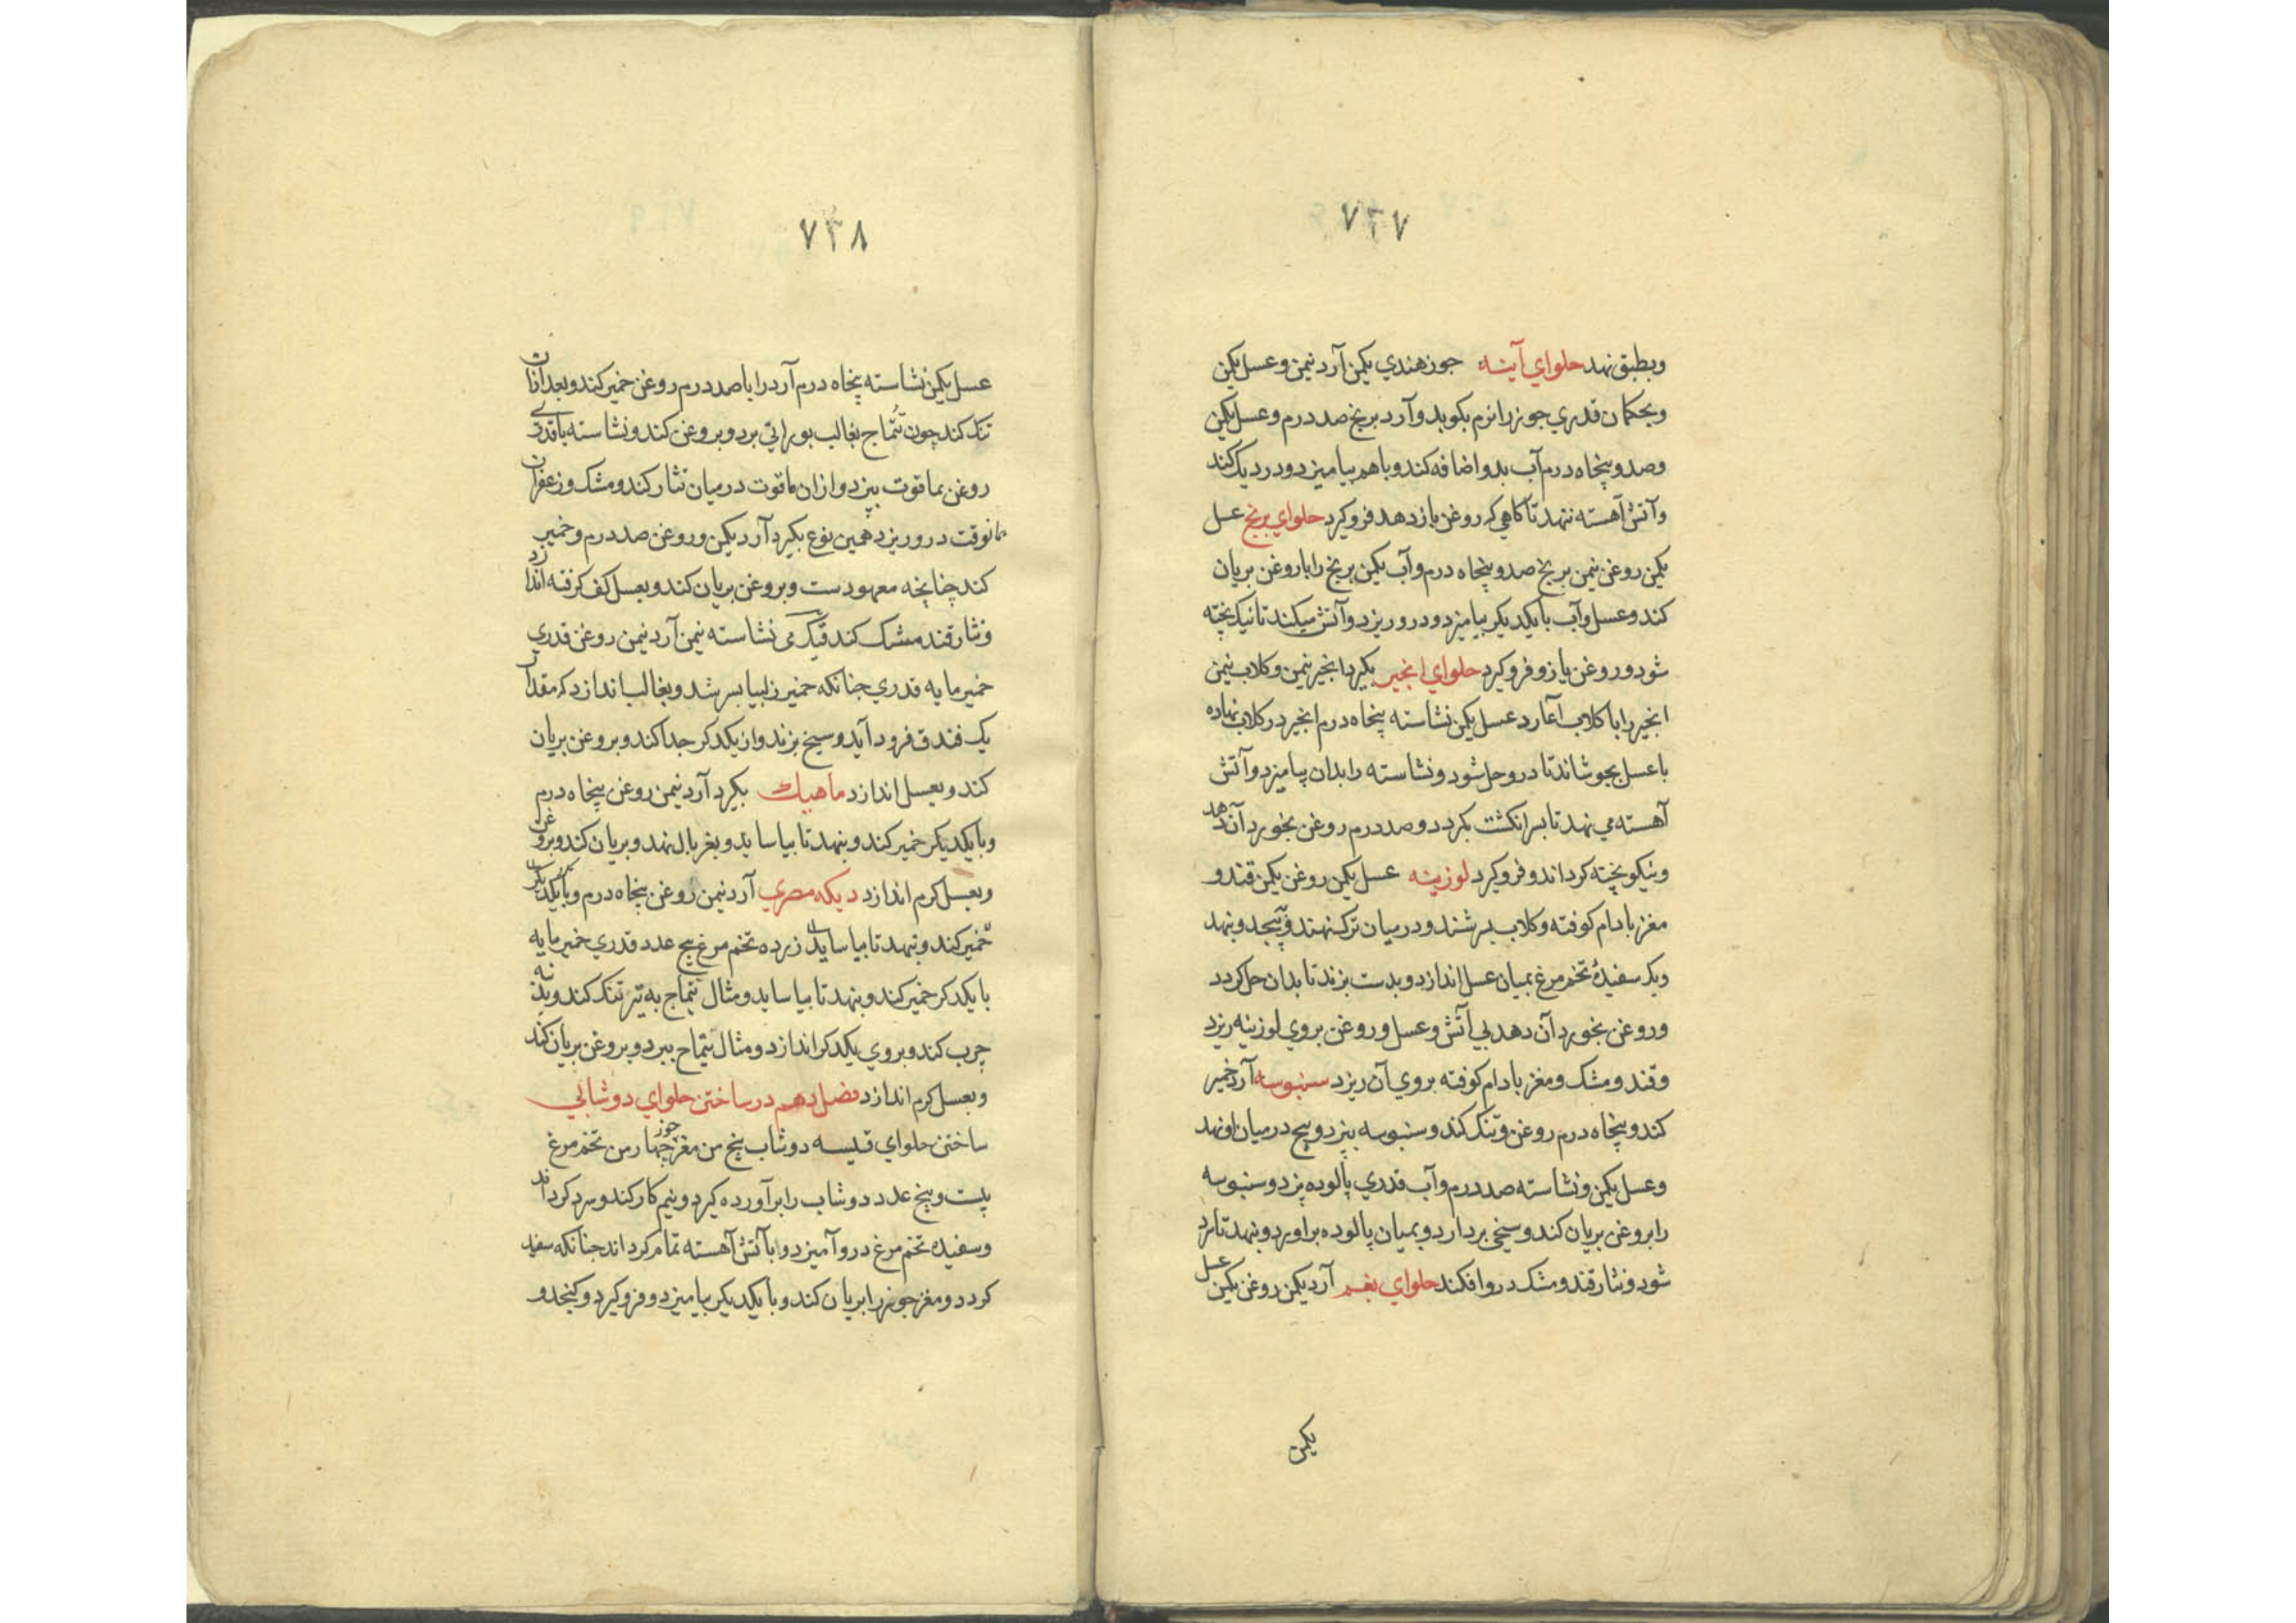 ۷۳۷
وبطبق نهد حلوای آینه جوز هندي یکمن آرد نیمن وعسل یکمن
وبحکمان قدري جوز را نرم بکوبد وآرد برنج صد درم وعسل یکمن
وصد وپنجاه درم آب بدو اضافه کند وباهم بیامیزد ودر دیک کند
وآتش آهسته نهد تا کاهي که روغن بازدهد فروکیرد حلوای برنج عسل
یکمن روغن نیمن برنج صد وپنجاه درم وآب یکمن برنج را با روغن بریان
کند وعسل وآب با یکدیکر بیامیزد ودرو ریزد وآتش میکند تا نیک پخته
شود وروغن بازو فروکیرد حلوای انجیر بکیرد انجیر نیمن وکلاب نیمن
انجیر را با کلاب آغارد عسل یکمن نشاسته پنجاه درم انجیر در کلاب نهاده
با عسل بجوشاند تا درو حل شود ونشاسته را بدان بیامیزد وآتش
آهسته مي نهد تا بر انکشت بکردد وصد درم روغن بخورد آن دهد
ونیکو پخته کرداند وفروکیرد لوزینه عسل یکمن روغن یکمن قند و
مغز بادام کوفته وکلاب بسرشند ودر میان ترک نهند وبپیچد وبنهد
ویک سفیدهٔ تخم مرغ بمیان عسل اندازد وبدست بزند تا بدان حل کردد
وروغن بخورد آن دهد بي آتش وعسل وروغن بروي لوزینه ریزد
وقند ومشک ومغز بادام کوفته بروي آن ریزد سنبوسه آرد خمیر
کند وپنجاه درم روغن وتنک کند وسنبوسه بپزد وهیچ در میان او نهد
وعسل یکمن ونشاسته صد درم وآب قدري پالوده پزد وسنبوسه
را بروغن بریان کند وسیخي بردارد وبمیان پالوده براورد وبنهد تا سرد
شود ونثار قند ومشک درو افکند حلوای آرد یکمن روغن یکمن عسل
یکمن
۷۳۸
عسل یکمن نشاسته پنجاه درم آرد را با صد درم روغن خمیر کند وبعد از آن
تنک کند چون تتماج بقالب بوراني برد وبروغن کند ونشاسته با قدري
روغن بماقوت بپزد وازان ماقوت در میان نثار کند ومشک وزعفران
مانوقت درو ریزد همین نوع بکیرد آرد یکمن وروغن صد درم وخمیر
کند چنانچه معهودست وبروغن بریان کند وبعسل کف کرفته اندازد
ونثار قند مشک کند نشاسته نیمن آرد نیمن روغن قدري
خمیرمایه قدري چنانکه خمیر زلبیا بسرشد وبقالب اندازد که مقدار
یک فندق فرود آید وسیخ بزند واز یکدکر جدا کند وبروغن بریان
کند وبعسل اندازد ماهیک بکیرد آرد نیمن روغن پنجاه درم
وبا یکدیکر خمیر کند وبنهد تا بیاساید وبغربال نهد وبریان کند وبروغن
وبعسل کرم اندازد دیکه مصري آرد نیمن روغن پنجاه درم وبا یکدیکر
خمیر کند وبنهد تا بیاساید زرده تخم مرغ پنج عدد قدري خمیرمایه
با یکدکر خمیر کند وبنهد تا بیاساید ومثال تتماج به تیر تنک کند وبدنبه
چرب کند وبروي یکدکر اندازد ومثال تتماج ببرد وبروغن بریان کند
وبعسل کرم اندازد فصل دهم در ساختن حلوای دوشابي
ساختن حلوای قبیسه دوشاب پنج من مغز جوز چهار من تخم مرغ
بیست وپنج عدد دوشاب را برآورده کیرد ونیم کار کند وسرد کرداند
وسفیده تخم مرغ درو آمیزد وبا آتش آهسته تمام کرداند چنانکه سفید
کردد ومغز جوز را بریان کند وبا یکدیکر بیامیزد وفروکیرد وکنجد و